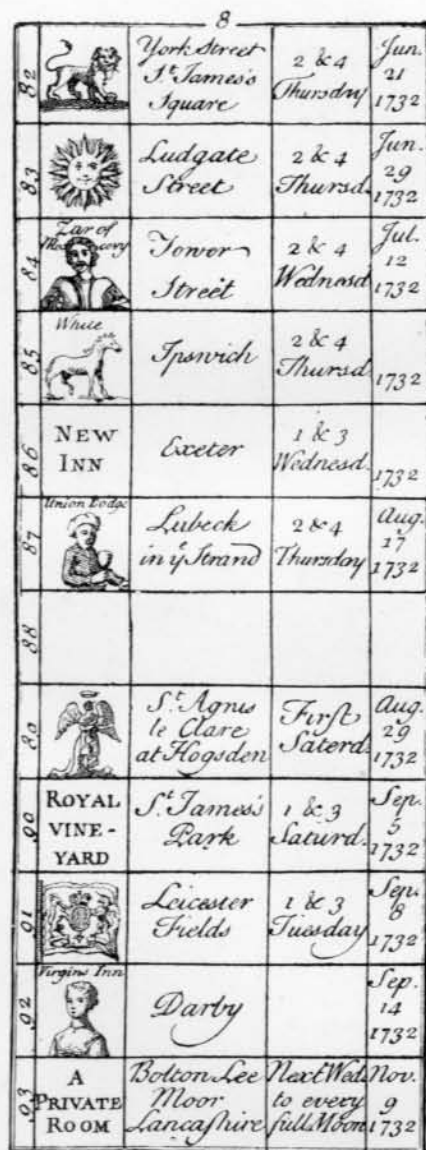 8
82
York Street
St. James's
Square
2 & 4
Thursday
Jun.
21
1732
83
Ludgate
Street
2 & 4
Thursd.
Jun.
29
1732
84
Zar of
Moscovy
Tower
Street
2 & 4
Wednesd
Jul.
12
1732
85
White
Ipswich
2 & 4
Thursd
1732
86
NEW
INN
Exeter
1 & 3
Wednesd.
1732
87
Union Lodge
Lubeck
in ye Strand
2 & 4
Thursday
Aug.
17
1732
88
89
St. Agnis
le Clare
at Hogsden
First
Saterd.
Aug.
29
1732
90
ROYAL
VINE-
YARD
St. James's
Park
1 & 3
Saturd.
Sep.
5
1732
91
Leicester
Fields
1 & 3
Tuesday
Sep.
8
1732
92
Virgins Inn
Darby
Sep.
14
1732
93
A
PRIVATE
ROOM
Bolton Lee
Moor
Lancashire
Next Wed.
to every
full Moon
Nov.
9
1732